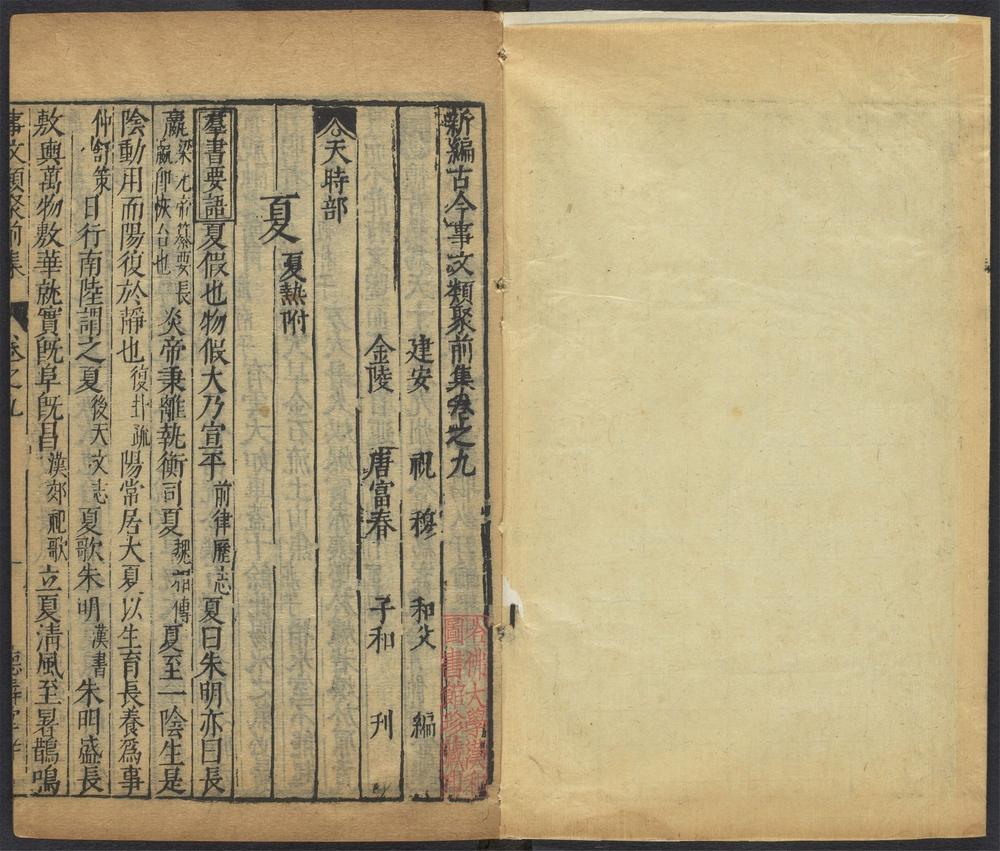 新編古今事文類聚前集卷之九
建安 祝穆 和父 編
金陵 唐富春 子和 刊
天時部
夏 夏熱附
羣書要語 夏假也物假大乃宣平 前律歷志 夏曰朱明亦曰長
嬴 梁元帝纂要長嬴即恢台也 炎帝秉離執衡司夏 魏相傳 夏至一陰生是
陰動用而陽復於靜也 復卦疏 陽常居大夏以生育長養爲事
仲舒策 日行南陸謂之夏 後天文志 夏歌朱明 漢書 朱明盛長
敷與萬物敷華就實旣阜旣昌 漢郊祀歌 立夏清風至暑鵲鳴
事文類聚前集 卷之九
哈佛大學漢和圖書館珍藏印